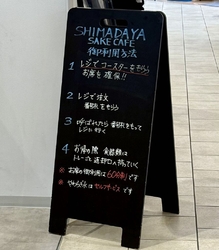 SHIMADAYA
SAKE CAFE
御利用方法
1 レジでコースターをもらう
お席を確保!!
2 レジで注文
番号札をもらう
3 呼ばれたら 番号札をもって
レジに行く
4 お帰の際 食器類は
トレーごと返却口へ持っていく
※ お席の御利用は60分制です
※ やわらぎ水はセルフサービスです